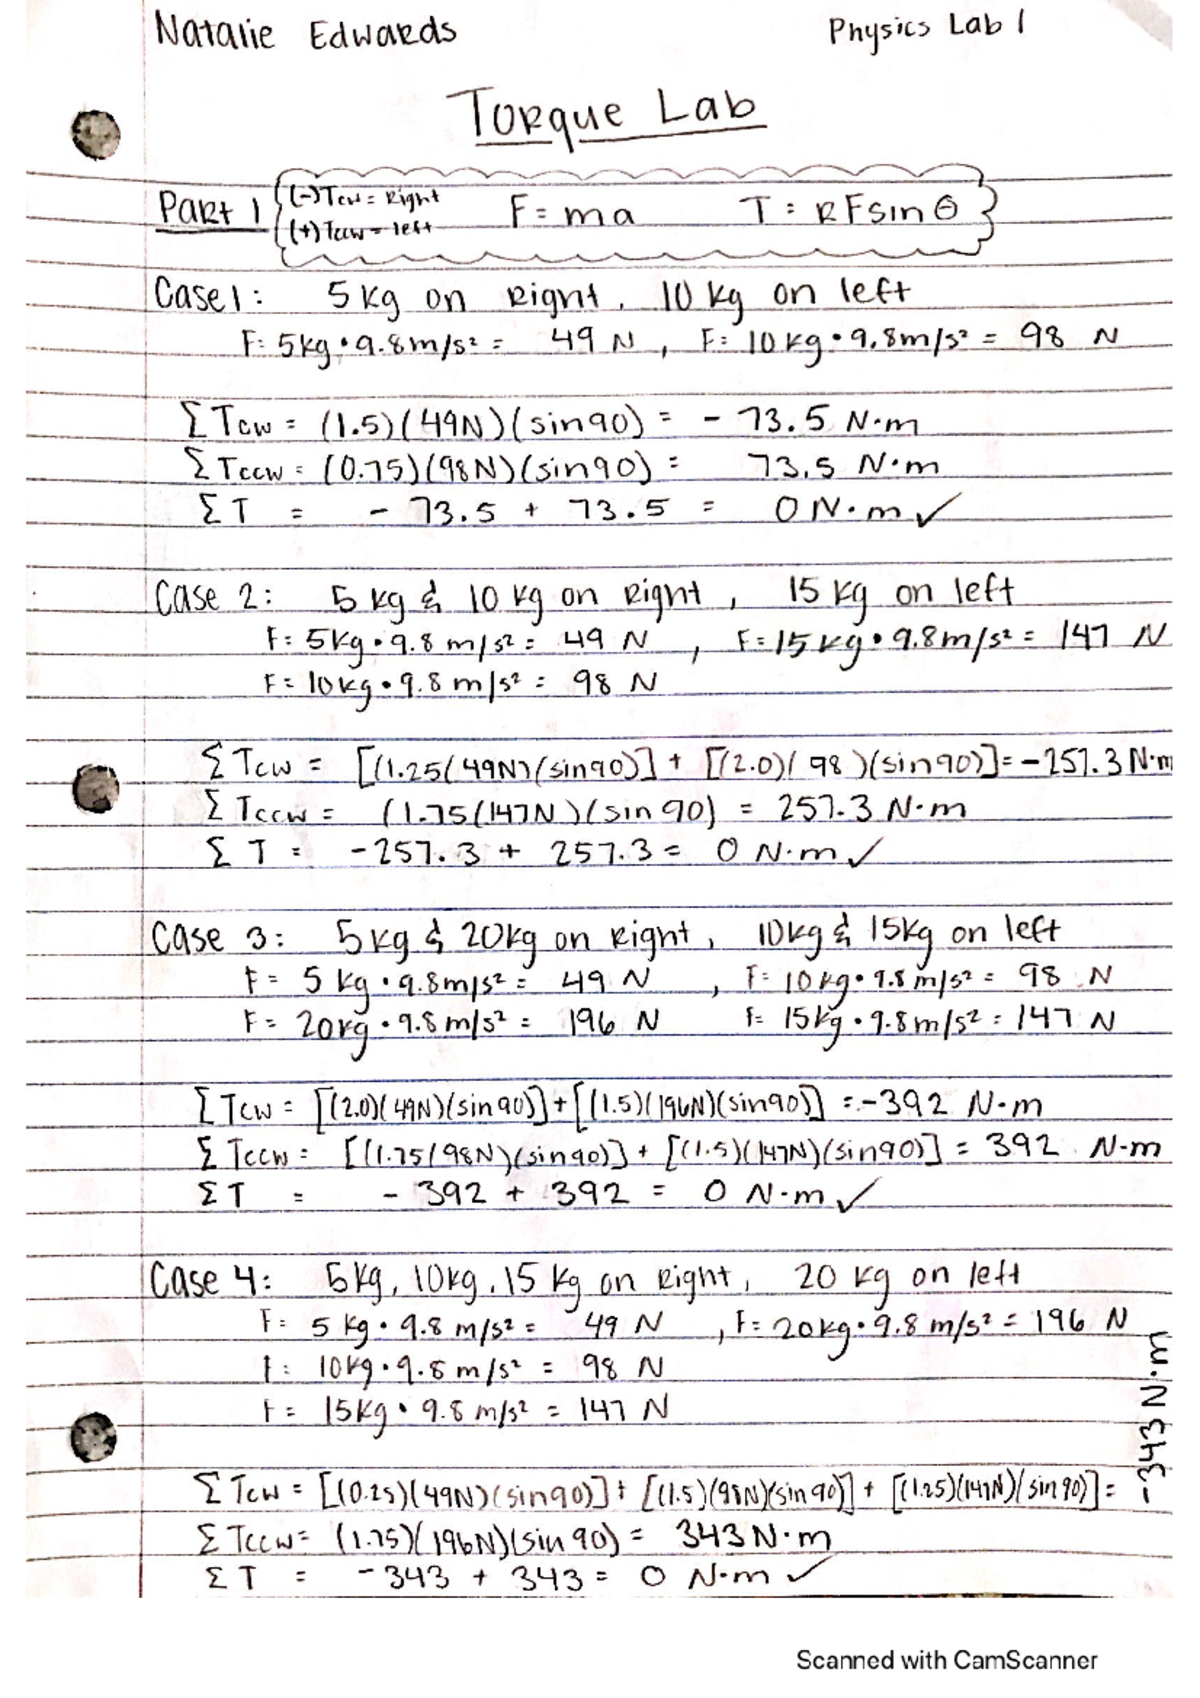 Natalie Edwards
Physics Lab 1
Torque Lab
Part 1
(-) Tcw = Right
(+) Tccw = left
F = ma
T = RFsinθ
Case 1: 5 kg on Right, 10 kg on left
F= 5kg • 9.8m/s² = 49 N , F= 10 kg • 9.8m/s² = 98 N
ΣTcw = (1.5)(49N)(sin90) = - 73.5 N·m
ΣTccw = (0.75)(98N)(sin90) = 73.5 N·m
ΣT = - 73.5 + 73.5 = 0 N·m ✓
Case 2: 5 kg & 10 kg on Right , 15 kg on left
F= 5kg • 9.8 m/s² = 49 N , F= 15 kg • 9.8m/s² = 147 N
F= 10kg • 9.8 m/s² = 98 N
ΣTcw = [(1.25(49N)(sin90)] + [(2.0)(98)(sin90)] = -257.3 N·m
ΣTccw = (1.75(147N)(sin 90) = 257.3 N·m
ΣT = -257.3 + 257.3 = 0 N·m ✓
Case 3: 5kg & 20kg on Right, 10kg & 15kg on left
F = 5 kg • 9.8m/s² = 49 N , F= 10kg • 9.8 m/s² = 98 N
F = 20kg • 9.8 m/s² = 196 N F= 15kg • 9.8m/s² = 147 N
ΣTcw = [(2.0)(49N)(sin90)] + [(1.5)(196N)(sin90)] = -392 N·m
ΣTccw = [(1.75(98N)(sin90)] + [(1.5)(147N)(sin90)] = 392 N·m
ΣT = - 392 + 392 = 0 N·m ✓
Case 4: 5kg, 10kg, 15 kg on Right, 20 kg on left
F= 5 kg • 9.8 m/s² = 49 N , F= 20kg • 9.8 m/s² = 196 N
F= 10kg • 9.8 m/s² = 98 N
F= 15kg • 9.8 m/s² = 147 N
ΣTcw = [(0.25)(49N)(sin90)] + [(1.5)(98N)(sin90)] + [(1.25)(147N)(sin90)] = -343 N·m
ΣTccw = (1.75)(196N)(sin 90) = 343 N·m
ΣT = -343 + 343 = 0 N·m ✓
Scanned with CamScanner